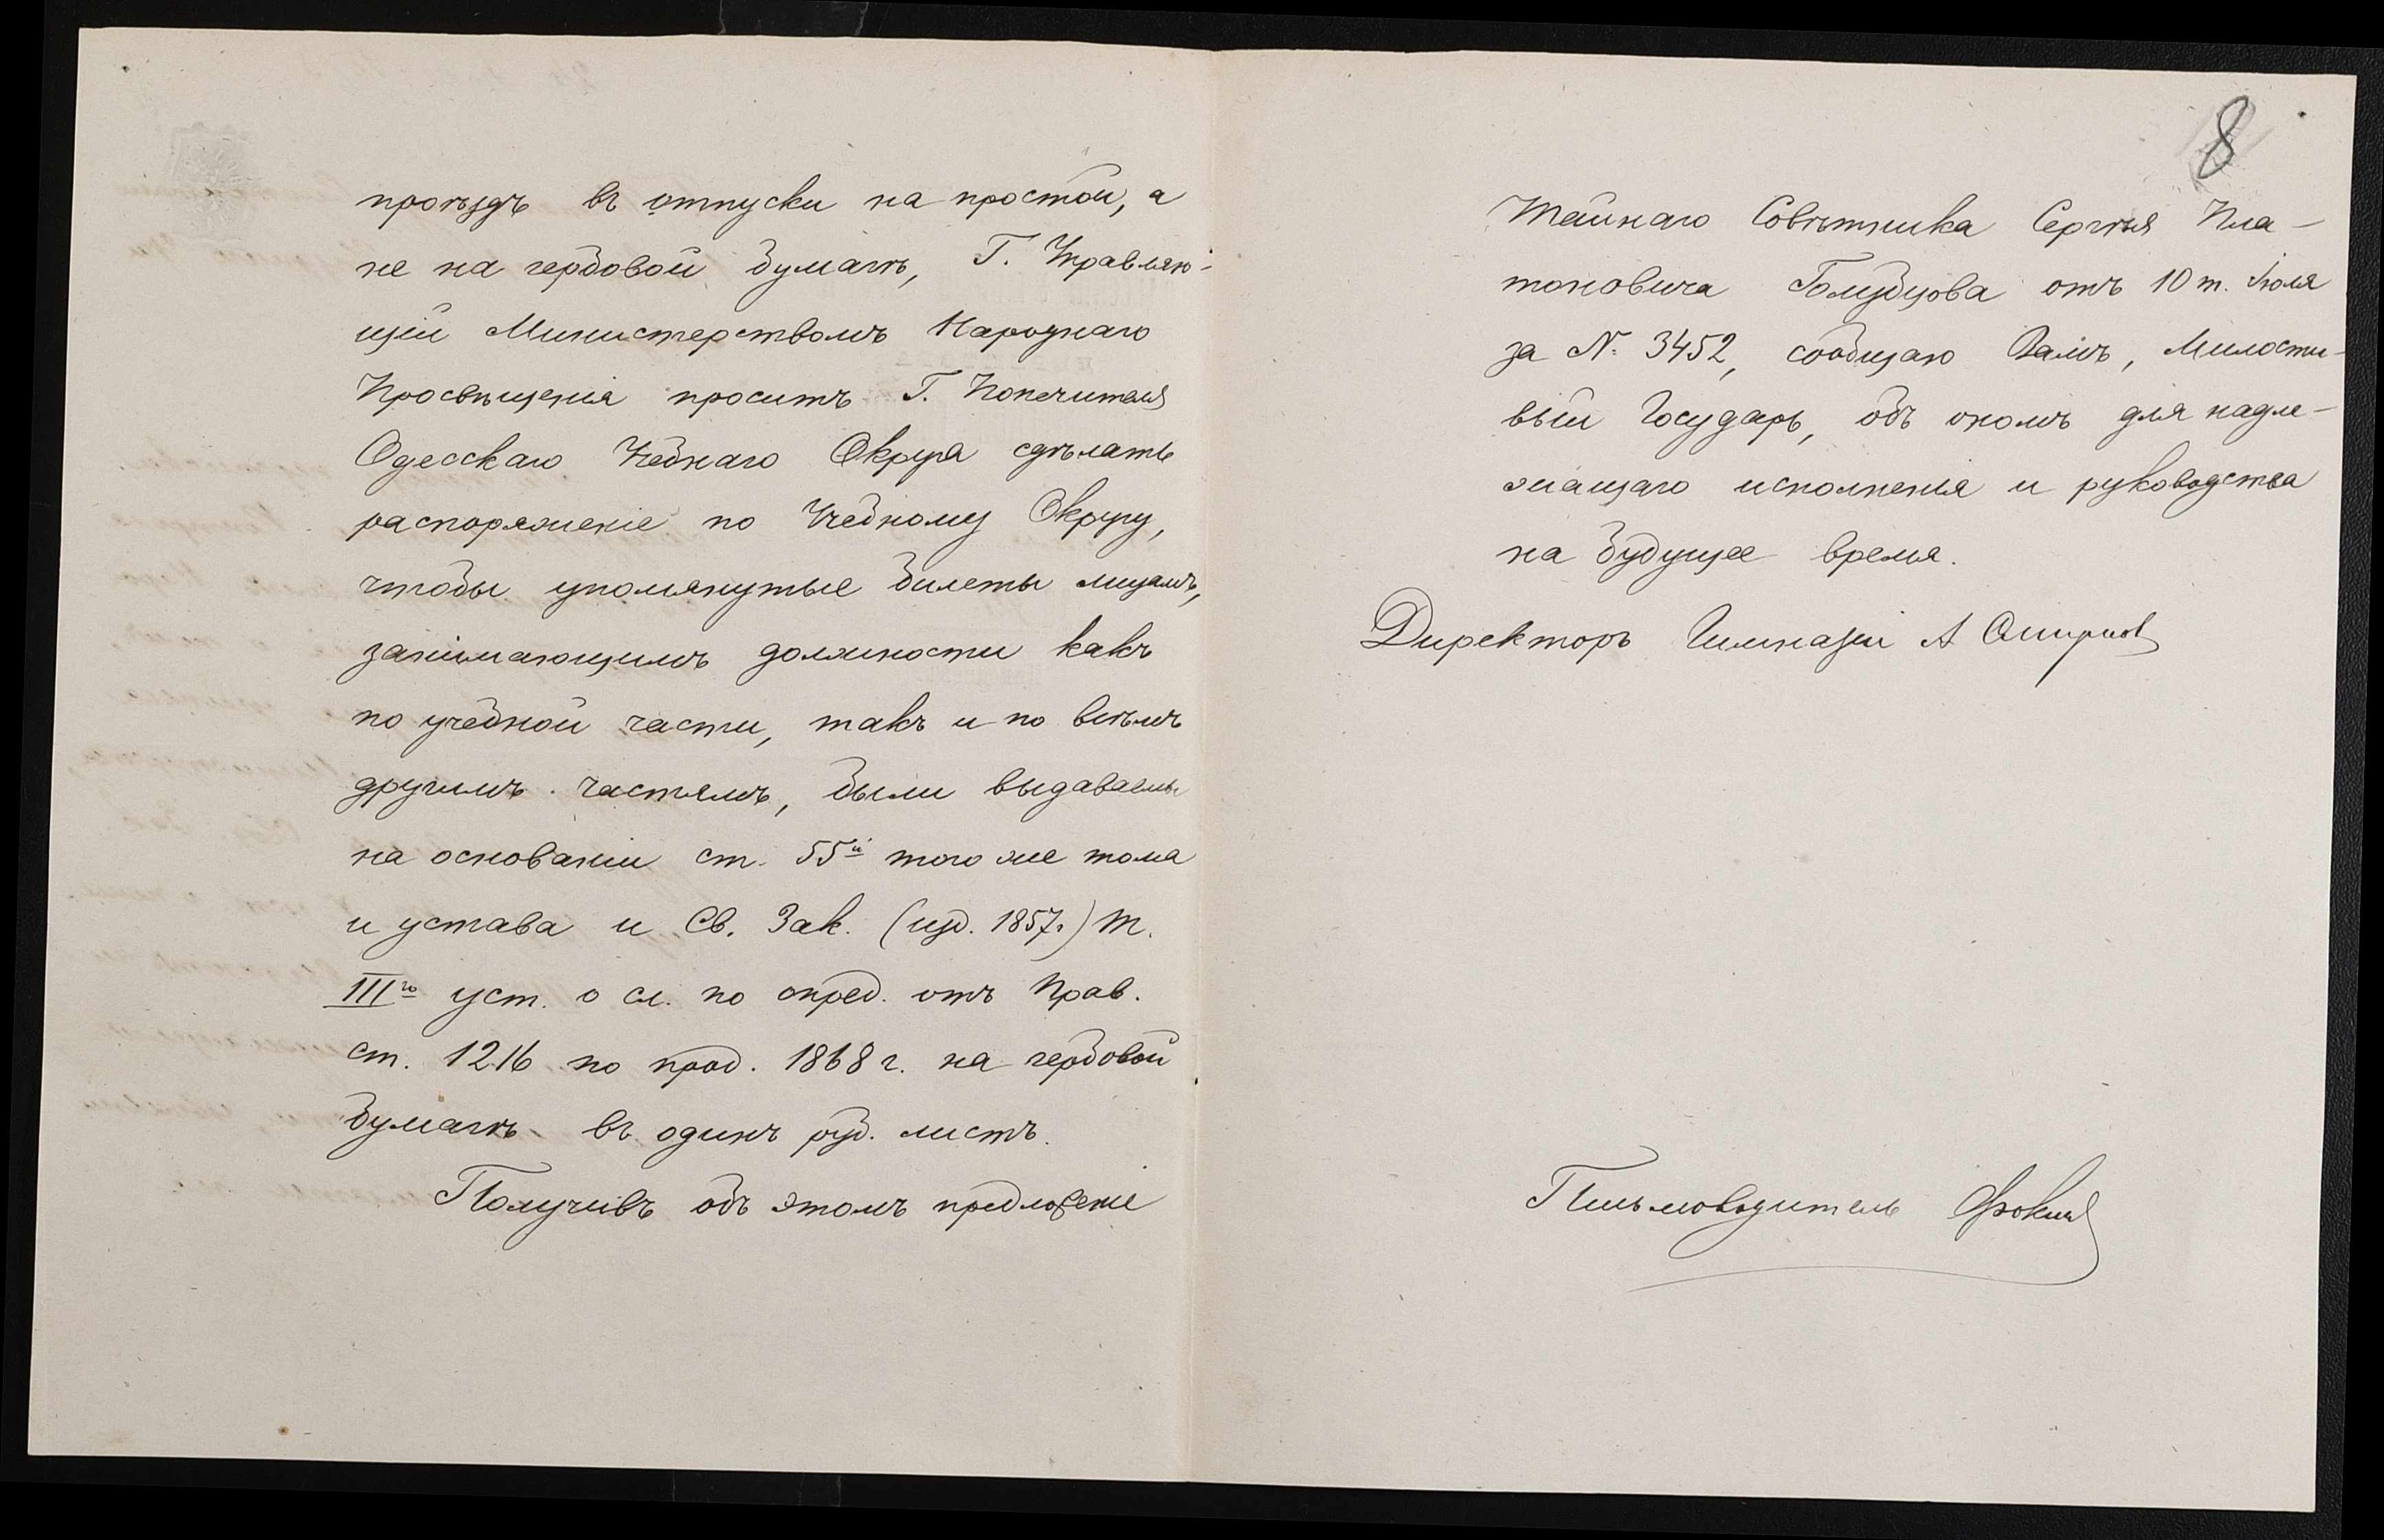 проѣздъ въ отпуски на простой, а
не на гербовой бумагѣ, Г. Управляю-
щій Министерствомъ Народнаго
Просвѣщенія проситъ Г. Попечителя
Одесскаго Учебнаго Округа сдѣлать
распоряженіе по Учебному Округу,
чтобы упомянутые билеты лицамъ,
занимающимъ должности какъ
по учебной части, такъ и по всѣмъ
другимъ частямъ, были выдаваемы
на основаніи ст. 55й того же тома
и устава и Св. Зак. (изд. 1857г.) т.
IIIго уст. о сл. по опред. отъ Прав.
ст. 1216 по прод. 1868 г. на гербовой
бумагѣ въ одинъ руб. листъ.
Получивъ объ этомъ предложеніе
8
Тайнаго Совѣтника Сергѣя Пла-
тоновича Голубцова отъ 10 т. Іюля
за №: 3452, сообщаю Вамъ, Милости-
вый Государь, объ ономъ для надле-
жащаго исполненія и руководства
на будущее время.
Директоръ Гимназіи А Смирнов
Письмоводитель